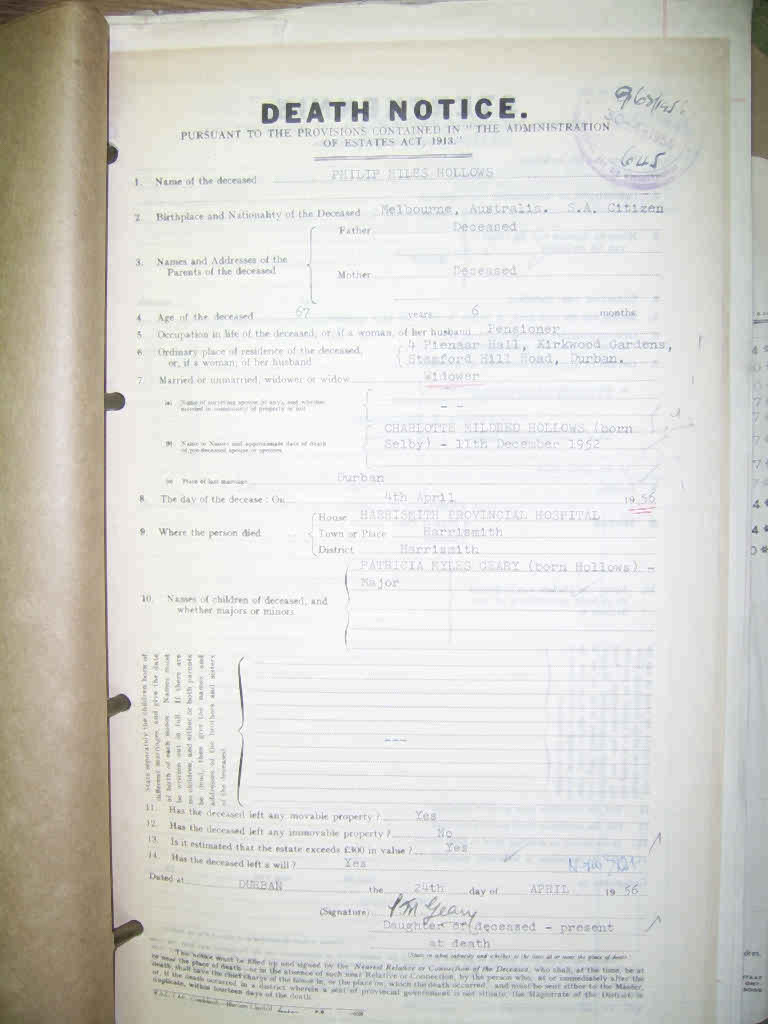 DEATH NOTICE.
PURSUANT TO THE PROVISIONS CONTAINED IN "THE ADMINISTRATION
OF ESTATES ACT, 1913."
645
1. Name of the deceased PHILIP MILES HOLLOWS
2. Birthplace and Nationality of the Deceased Melbourne, Australia. S.A. Citizen
3. Names and Addresses of the Parents of the deceased
Father Deceased
Mother Deceased
4. Age of the deceased 67 years 6 months
5. Occupation in life of the deceased, or, if a woman, of her husband Pensioner
6. Ordinary place of residence of the deceased, or, if a woman, of her husband
4 Pienaar Hall, Kirkwood Gardens,
Stamford Hill Road, Durban.
7. Married or unmarried, widower or widow Widower
(a) Name of surviving spouse (if any), and whether married in community of property or not
- -
(b) Name or Names and approximate date of death of pre-deceased spouse or spouses
CHARLOTTE MILDRED HOLLOWS (born
Selby) - 11th December 1952
(c) Place of last marriage Durban
8. The day of the decease : On 4th April 1956
9. Where the person died
House HARRISMITH PROVINCIAL HOSPITAL
Town or Place Harrismith
District Harrismith
10. Names of children of deceased, and whether majors or minors
PATRICIA MYLES GEARY (born Hollows) -
Major
State separately the children born of
different marriages, and give the date
of birth of each minor. Names must
be written out in full. If there are
no children, and either or both parents
be dead, then give the names and
addresses of the brothers and sisters
of the deceased.
---
11. Has the deceased left any movable property ? Yes
12. Has the deceased left any immovable property ? No
13. Is it estimated that the estate exceeds £300 in value ? Yes
14. Has the deceased left a will ? Yes
Dated at DURBAN the 24th day of APRIL 1956
(Signature) P M Geary
Daughter of deceased - present
at death
(State in what capacity and whether at the time at or near the place of death.)
This notice must be filled up and signed by the Nearest Relative or Connection of the Deceased, who shall, at the time, be at
or near the place of death—or in the absence of such near Relative or Connection, by the person who, at or immediately after the
death, shall have the chief charge of the house in, or the place on, which the death occurred, and must be sent either to the Master,
or, if the death occurred in a district wherein a seat of provincial government is not situate, the Magistrate of the District, in
duplicate, within fourteen days of the death.